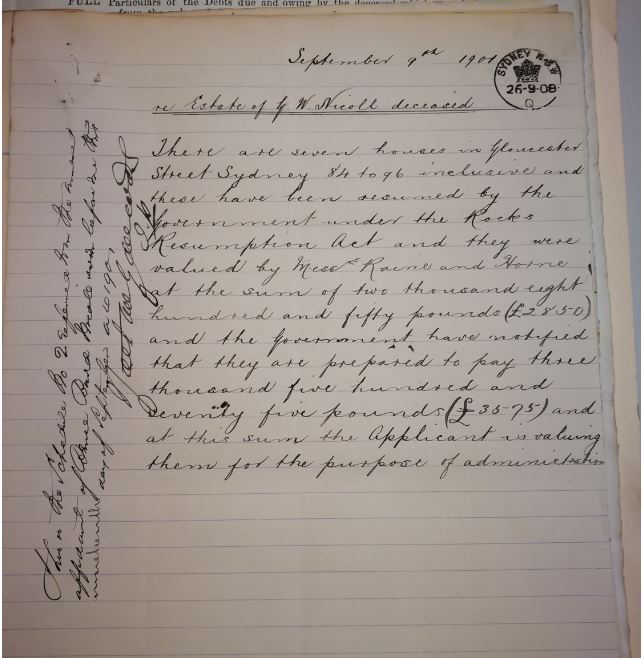 FULL Particulars of the Debts due and owing by the deceased
September 9th 1901
SYDNEY N.S.W
26-9-08
Q
re Estate of G. W. Nicoll deceased
There are seven houses in Gloucester
Street Sydney 84 to 96 inclusive and
these have been resumed by the
Government under the Rocks
Resumption Act and they were
valued by Messrs Raine and Horne
at the sum of two thousand eight
hundred and fifty pounds (£2850)
and the Government have notified
that they are prepared to pay three
thousand five hundred and
seventy five pounds (£3575) and
at this sum the Applicant is valuing
them for the purpose of administration
This is the Schedule No 2 in the annexed
affidavit of Bruce Baird Nicoll sworn before me this
day of September